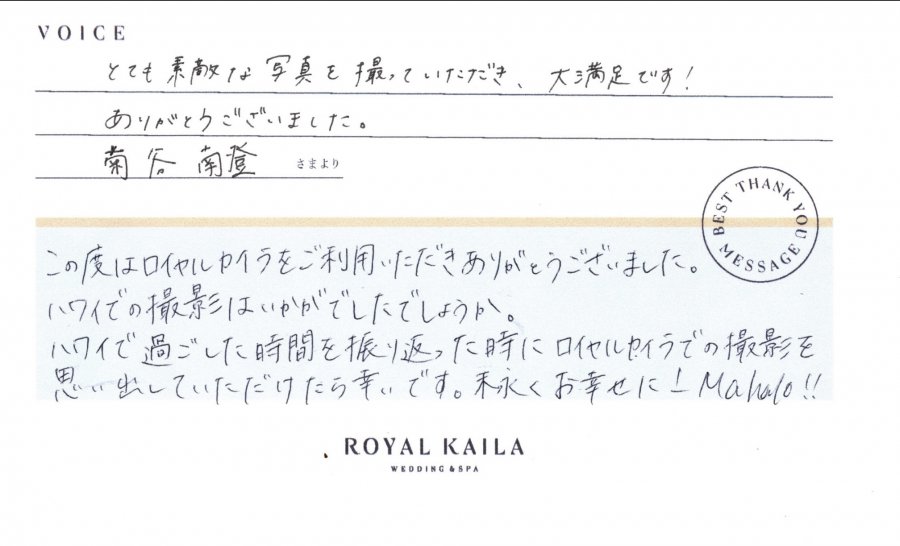 VOICE
とても素敵な写真を撮っていただき、大満足です!
ありがとうございました。
菊谷南登 さまより
BEST THANK YOU MESSAGE
この度はロイヤルカイラをご利用いただきありがとうございました。
ハワイでの撮影はいかがでしたでしょうか。
ハワイで過ごした時間を振り返った時にロイヤルカイラでの撮影を
思い出していただけたら幸いです。末永くお幸せに! Mahalo!!
ROYAL KAILA
WEDDING & SPA